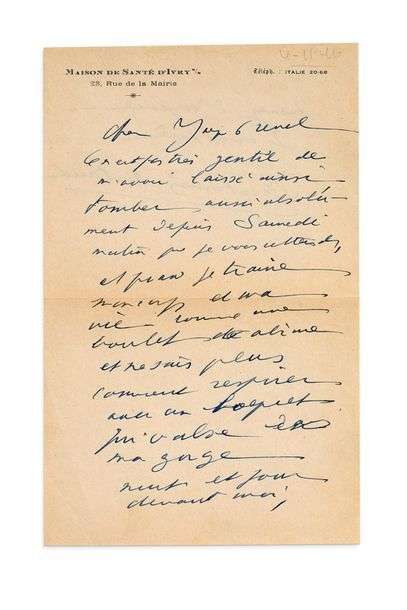 MAISON DE SANTÉ D'IVRY s/s
23, Rue de la Mairie
Téleph. : ITALIE 20-68
cher
ce n'est pas très gentil de
m'avoir laissé ainsi
tomber aussi absolu-
ment depuis Samedi
matin que je vous attends,
et puis je traine
mon corps et ma
vie comme une
boulet de
et ne sais plus
comment respirer
avec un
qui valse
ma gorge
nuit et jour
devant moi,